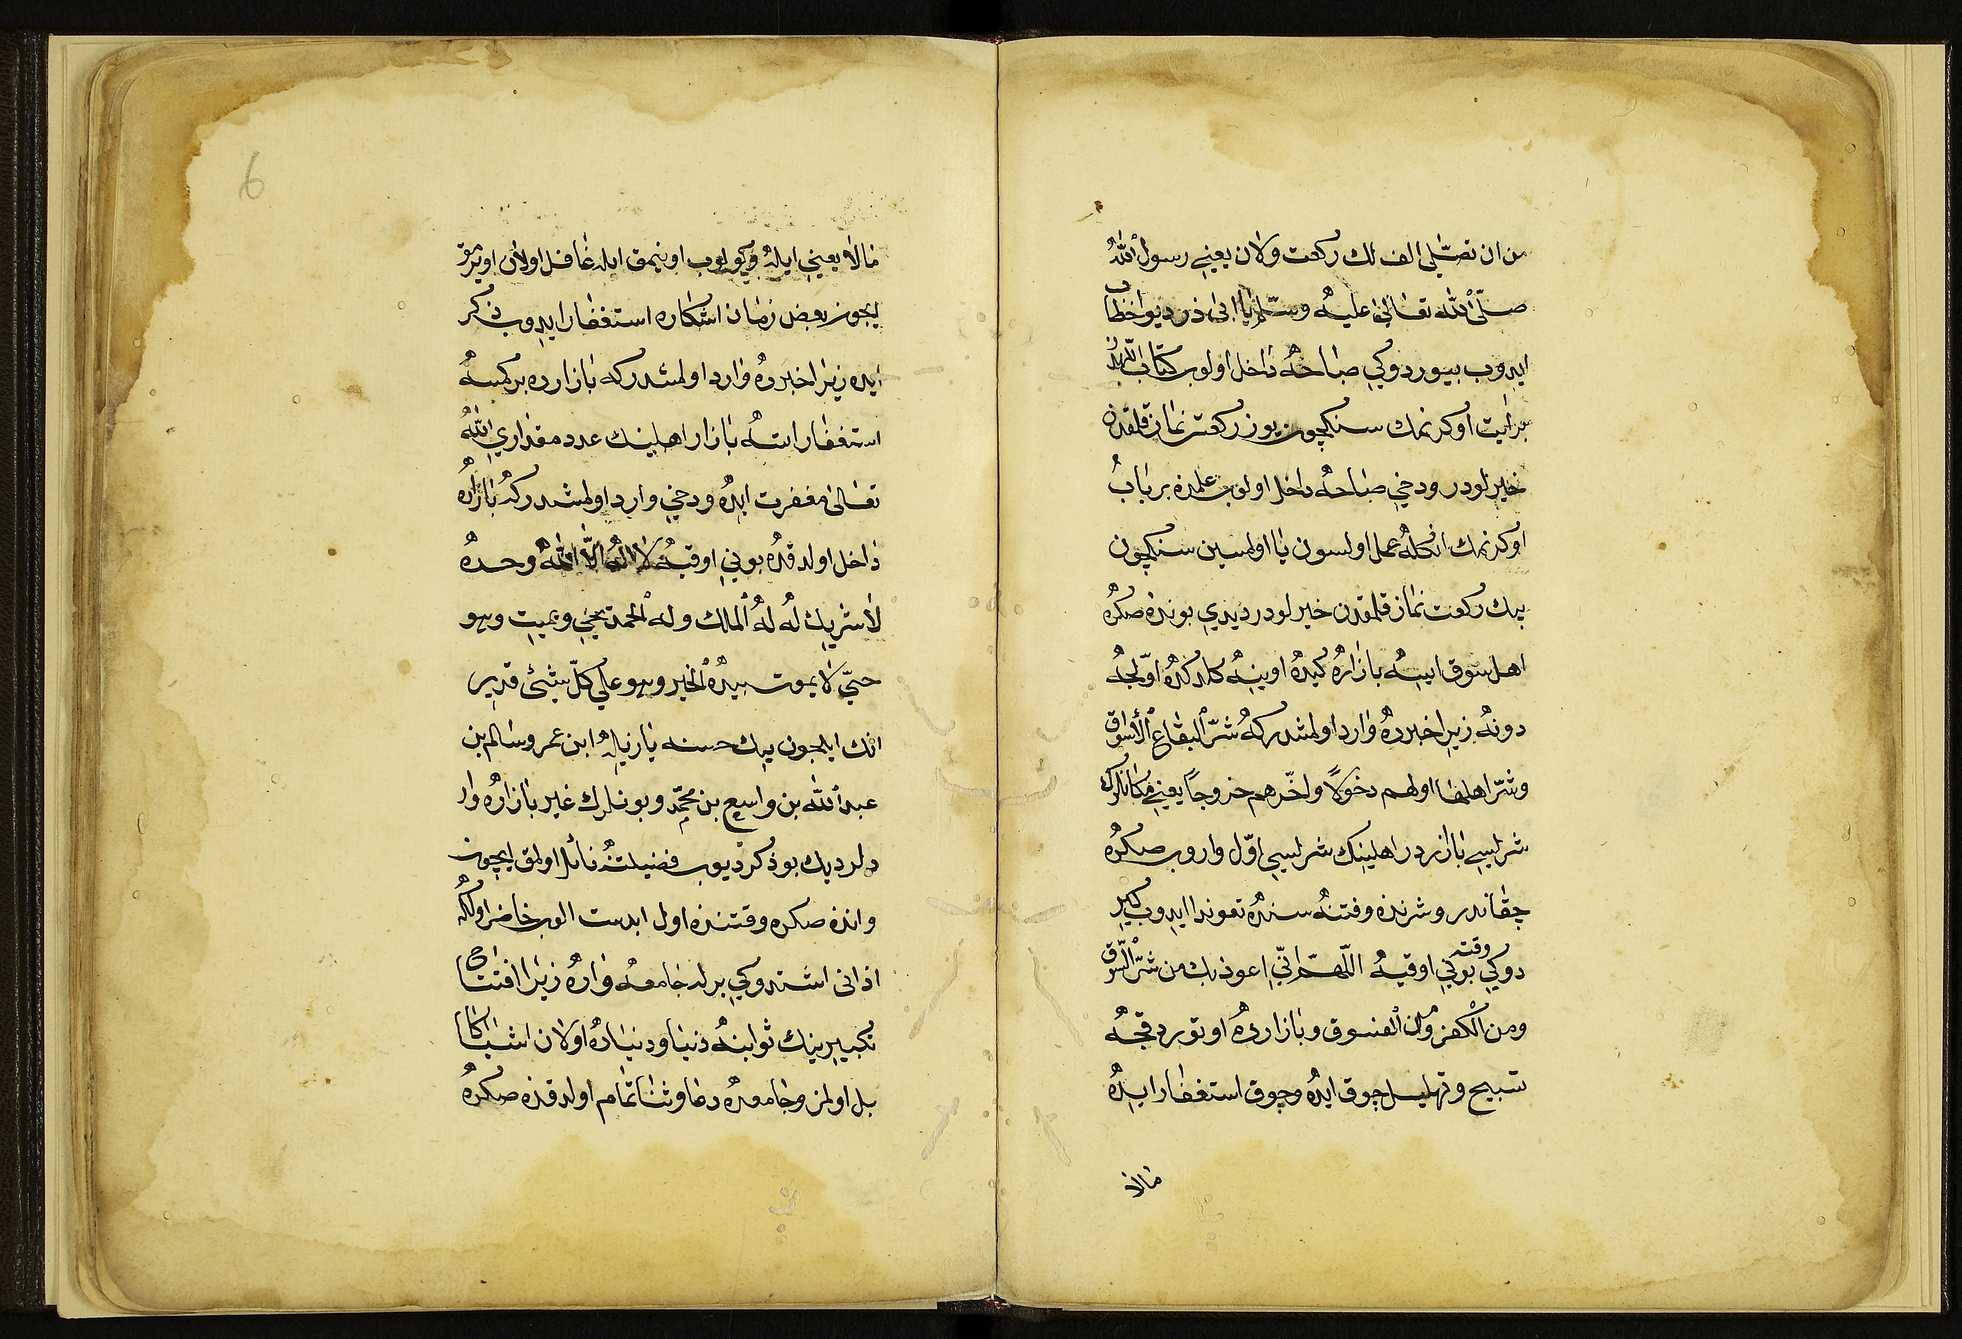 من ان تصلّي الف لك ركعت ولان يعني رسول الله
صلّى الله تعالى عليه وسلّم يا ابى ذر ديو خطاب
ايدوب بيوردوكي صباحه داخل اولوب كتاب الله دن
بر ايت اوكرنمك سنكچون يوز ركعت نماز قلمقدن
خيرلودر ودخي صباحه داخل اولوب علمدن بر باب
اوكرنمك انكله عمل اولسون يا اولمسين سنكچون
بيك ركعت نماز قلمقدن خيرلودر ديدي بوندن صكره
اهل سوق ايسه بازاره كيده اوينه كلدكده اولجه
دونه زيرا خبرده وارد اولمشدركه شرّ البقاع الأسواق
وشرّ اهلها اولهم دخولاً واخّرهم خروجاً يعني مكانلرك
شرليسي بازاردر اهلينك شرليسي اوّل واروب صكره
چقاندر وشرندن وفتنه سندن تعوندا ايدوب كير
دوكي وقته بوني اوقيه اللّهمّ انّي اعوذ بك من شرّ السّوق
ومن الكفر ومن الفسوق وبازارده اوتورد قجه
تسبيح وتهليل چوق ايده وچوق استغفار ايده
مالا
6
مالا يعني ايله وكولوب اوينمق ايله غافل اولان اويرمق
ايچون بعض زمان اشكاره استغفار ايدوب ذكر
ايده زيرا خبرده وارد اولمشدركه بازارده بر كمسه
استغفار ايتسه بازار اهلينك عدد مقداري الله
تعالى مغفرت ايده ودخي وارد اولمشدركه بازاره
داخل اولدقده بوني اوقيه لا اله الّا الله وحده
لا شريك له له الملك وله الحمد يحيي ويميت وهو
حيّ لا يموت بيده الخير وهو على كلّ شئ قدير
انك ايچون بيك حسنه يازيله ابن عمر وسالم بن
عبد الله بن واسع بن محمّد وبونلرك غير بازاره وار
دلرديك بو ذكر ديوب فضيلتنه نائل اولمق ايچون
واندن صكره وقتنده اول ابدست الوب حاضر اولكه
اذانى اشتدوكي برله جامعه واره زيرا افتتاح
تكبيرينك ثوابنه دنيا ودنياده اولان اشيا كا
بل اولمز وجامعده دعا وثنا تمام اولدقدن صكره